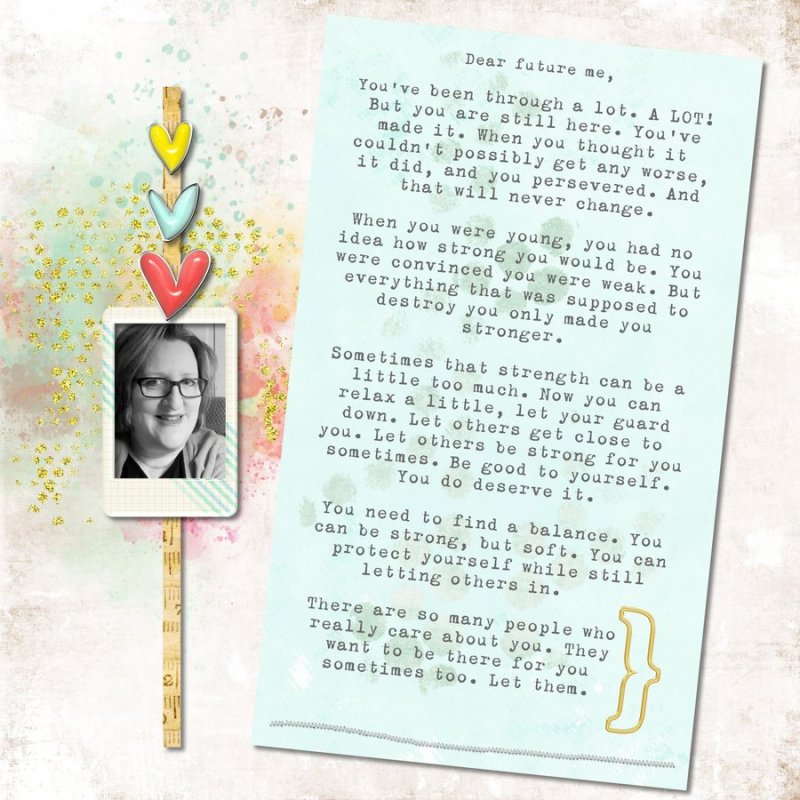 Dear future me,
You've been through a lot. A LOT!
But you are still here. You've
made it. When you thought it
couldn't possibly get any worse,
it did, and you persevered. And
that will never change.
When you were young, you had no
idea how strong you would be. You
were convinced you were weak. But
everything that was supposed to
destroy you only made you
stronger.
Sometimes that strength can be a
little too much. Now you can
relax a little, let your guard
down. Let others get close to
you. Let others be strong for you
sometimes. Be good to yourself.
You do deserve it.
You need to find a balance. You
can be strong, but soft. You can
protect yourself while still
letting others in.
There are so many people who
really care about you. They
want to be there for you
sometimes too. Let them.